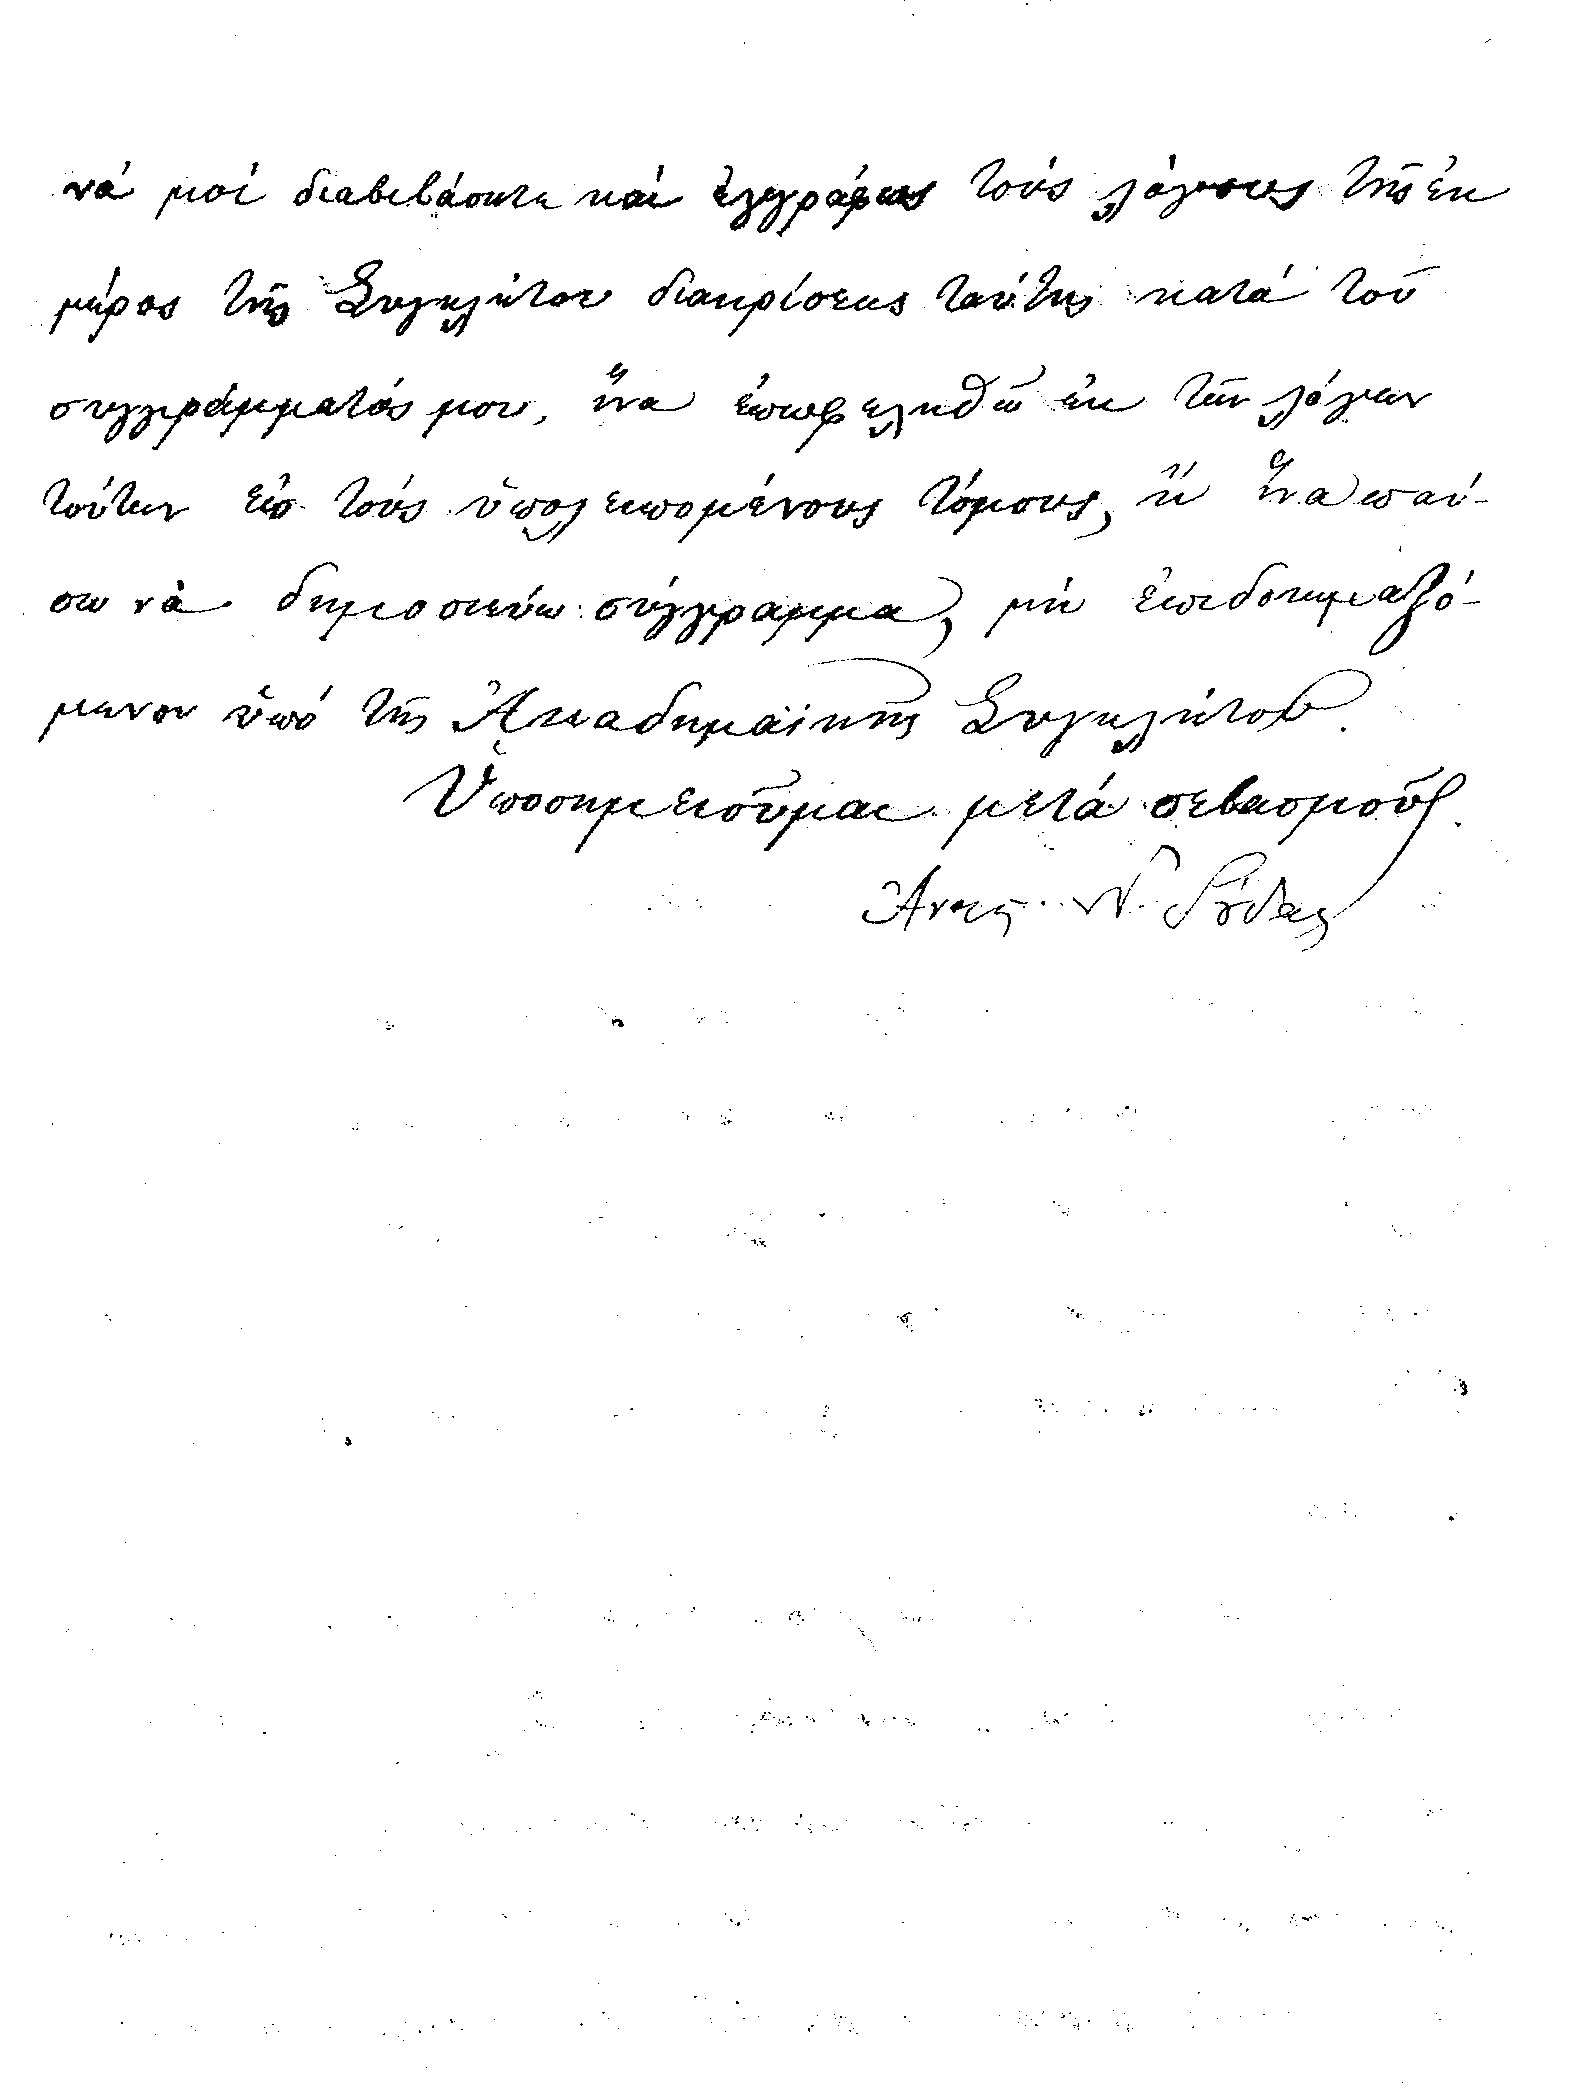 νά μοί διαβιβάσητε καί ἐγγράφως τούς λόγους τῆς ἐκ
μέρος τῆς Συγκλήτου διακρίσεως ταύτης κατά τοῦ
συγγράμματός μου, ἵνα ἐπωφεληθῶ ἐκ τῶν λόγων
τούτων εἰς τούς ὑπολειπομένους τόμους, ἤ ἵνα παύ-
σω νὰ δημοσιεύω σύγγραμμα, μή ἐπιδοκιμαζό-
μενον ὑπό τῆς Ἀκαδημαϊκῆς Συγκλήτου.
Ὑποσημειοῦμαι μετά σεβασμοῦ.